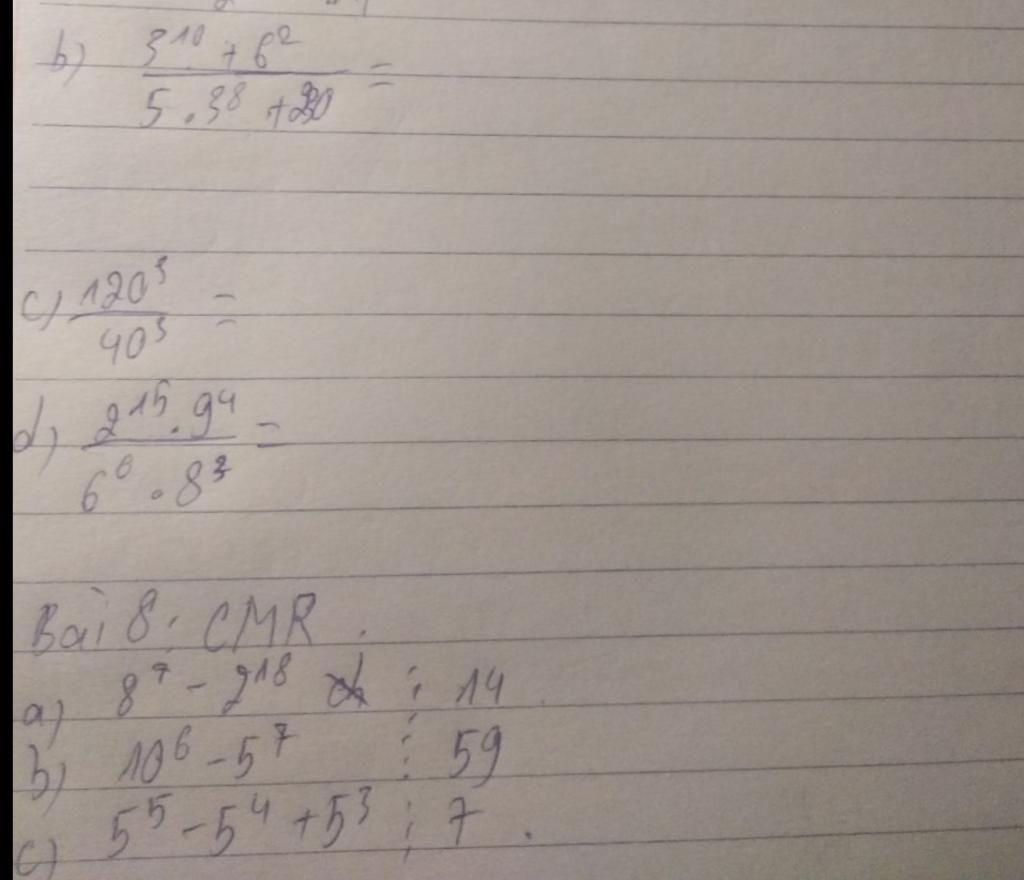 b) \frac{3^{10} + 6^2}{5 . 3^8 + 20} =
c) \frac{120^3}{40^3} =
d) \frac{2^{15} . 9^4}{6^6 . 8^3} =
Bài 8 : CMR .
a) 8^7 - 2^{18} ⋮ 14
b) 10^6 - 5^7 ⋮ 59
c) 5^5 - 5^4 + 5^3 ⋮ 7 .